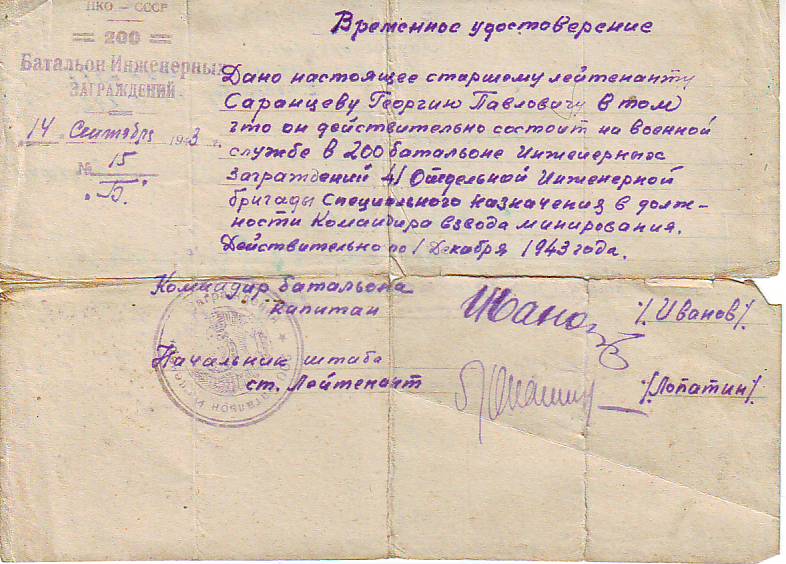 НКО – СССР
200
Батальон Инженерных
ЗАГРАЖДЕНИЙ
14 Сентября 1943 г.
№ 15
"Б".
Временное удостоверение
Дано настоящее старшему лейтенанту
Саранцеву Георгию Павловичу в том
что он действительно состоит на военной
службе в 200 батальоне Инженерных
Заграждений 41 Отдельной Инженерной
бригады Специального Назначения в долж-
ности Командира взвода минирования.
Действительно по 1 Декабря 1943 года.
Командир батальона
капитан
Иванов
/Иванов/.
Начальник штаба
ст. Лейтенант
/Лопатин/.